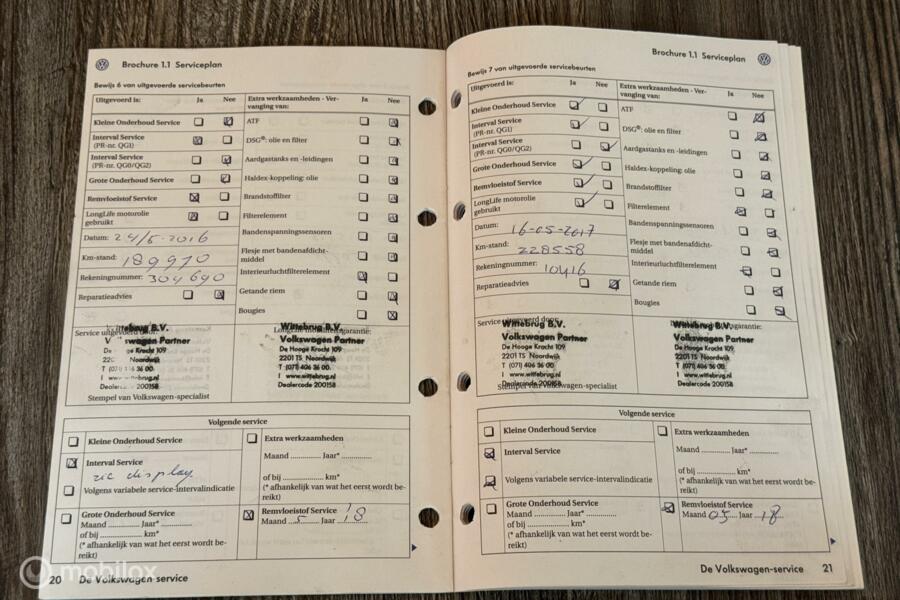 Brochure 1.1 Serviceplan
Bewijs 6 van uitgevoerde servicebeurten
Uitgevoerd is: Ja Nee
Kleine Onderhoud Service
Interval Service
(PR-nr. QG1)
Interval Service
(PR-nr. QG0/QG2)
Grote Onderhoud Service
Remvloeistof Service
LongLife motorolie
gebruikt
Datum: 24/5-2016
Km-stand: 189970
Rekeningnummer: 304690
Reparatieadvies
Extra werkzaamheden - Ver-
vanging van: Ja Nee
ATF
DSG®: olie en filter
Aardgastanks en -leidingen
Haldex-koppeling: olie
Brandstoffilter
Filterelement
Bandenspanningssensoren
Flesje met bandenafdicht-
middel
Interieurluchtfilterelement
Getande riem
Bougies
Service uitgevoerd door:
Wittebrug B.V.
Volkswagen Partner
De Hooge Kracht 109
Noordwijk
T (071) 406 36 00
I www.wittebrug.nl
Dealercode 200158
Stempel van Volkswagen-specialist
Wittebrug B.V.
Volkswagen Partner
De Hooge Kracht 109
2201 TS Noordwijk
T (071) 406 36 00
I www.wittebrug.nl
Dealercode 200158
Volgende service
Kleine Onderhoud Service
Interval Service
zie display
Volgens variabele service-intervalindicatie
Grote Onderhoud Service
Maand ............ Jaar* ............
of bij ............ km*
(* afhankelijk van wat het eerst wordt be-
reikt)
Extra werkzaamheden
Maand ............ Jaar* ............
of bij ............ km*
(* afhankelijk van wat het eerst wordt be-
reikt)
Remvloeistof Service
Maand 5 Jaar 18
20 De Volkswagen-service
mobilox
Brochure 1.1 Serviceplan
Bewijs 7 van uitgevoerde servicebeurten
Uitgevoerd is: Ja Nee
Kleine Onderhoud Service
Interval Service
(PR-nr. QG1)
Interval Service
(PR-nr. QG0/QG2)
Grote Onderhoud Service
Remvloeistof Service
LongLife motorolie
gebruikt
Datum: 16-05-2017
Km-stand: 228558
Rekeningnummer: 10416
Reparatieadvies
Extra werkzaamheden - Ver-
vanging van: Ja Nee
ATF
DSG®: olie en filter
Aardgastanks en -leidingen
Haldex-koppeling: olie
Brandstoffilter
Filterelement
Bandenspanningssensoren
Flesje met bandenafdicht-
middel
Interieurluchtfilterelement
Getande riem
Bougies
Service uitgevoerd door:
Wittebrug B.V.
Volkswagen Partner
De Hooge Kracht 109
2201 TS Noordwijk
T (071) 406 36 00
I www.wittebrug.nl
Dealercode 200158
Stempel van Volkswagen-specialist
Wittebrug B.V.
Volkswagen Partner
De Hooge Kracht 109
2201 TS Noordwijk
T (071) 406 36 00
I www.wittebrug.nl
Dealercode 200158
Volgende service
Kleine Onderhoud Service
Interval Service
Volgens variabele service-intervalindicatie
Grote Onderhoud Service
Maand ............ Jaar* ............
of bij ............ km*
(* afhankelijk van wat het eerst wordt be-
reikt)
Extra werkzaamheden
Maand ............ Jaar* ............
of bij ............ km*
(* afhankelijk van wat het eerst wordt be-
reikt)
Remvloeistof Service
Maand 05 Jaar 18
De Volkswagen-service 21